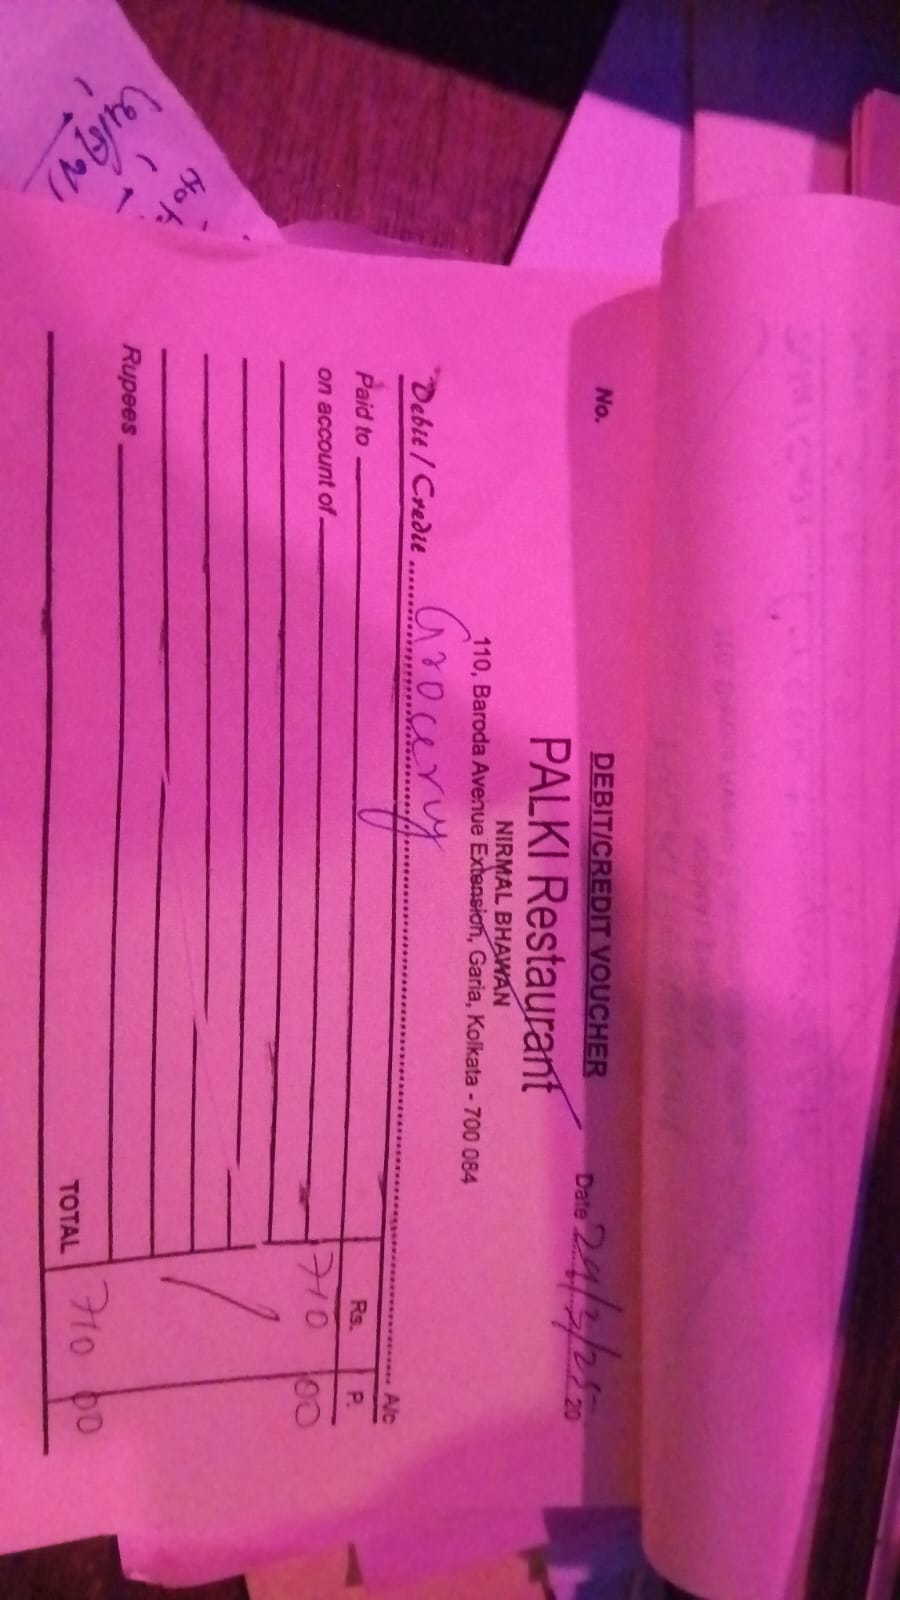 No.
DEBIT/CREDIT VOUCHER
Date 24/3/25 20
PALKI Restaurant
NIRMAL BHAWAN
110, Baroda Avenue Extension, Garia, Kolkata - 700 084
Debit / Credit Grocery A/c
Paid to Rs. P.
on account of 710 00
Rupees
TOTAL 710 00